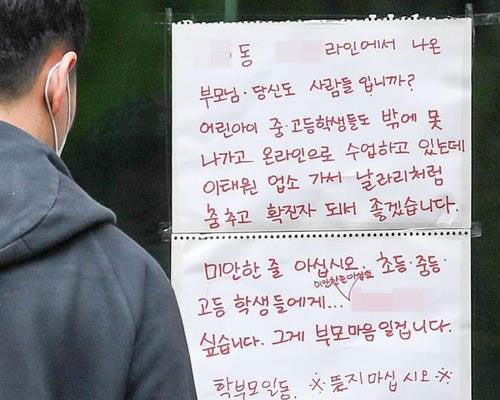 동 라인에서 나온
부모님. 당신도 사람들 입니까?
어린아이 중·고등학생들도 밖에 못
나가고 온라인으로 수업하고 있는데
이태원 업소 가서 날라리처럼
춤추고 확진자 되서 좋겠습니다.
미안한 줄 아십시오. 초등·중등·
미안한줄아십쇼
고등 학생들에게...
싶습니다. 그게 부모마음일겁니다.
학부모일동. ※ 뜯지마십시오 ※